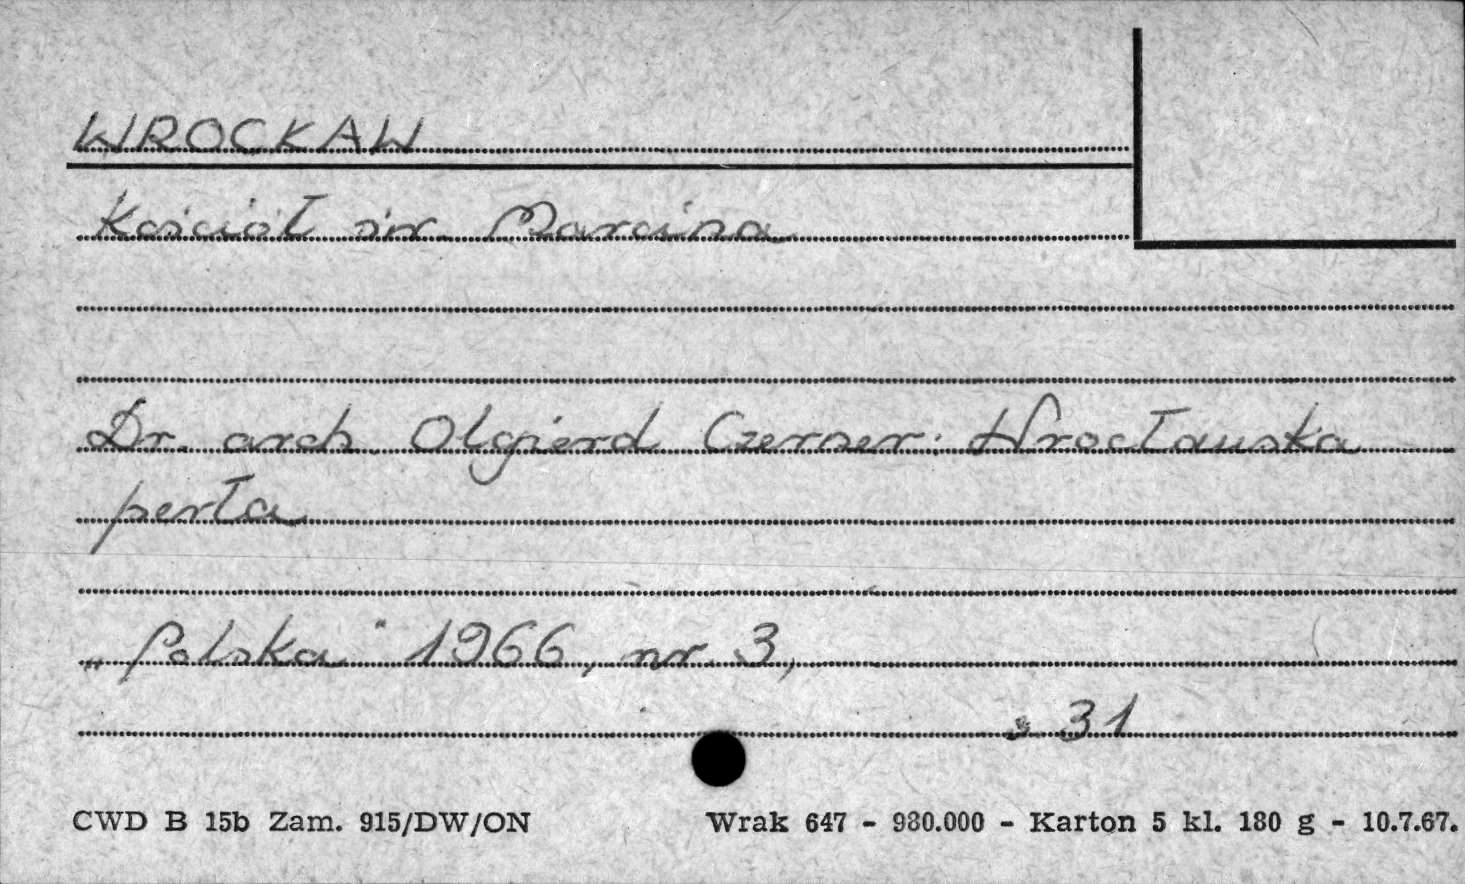 WROCŁAW
Kościół św. Marcina
Dr. arch. Olgierd Czerner: Wrocławska
perła
„Polska" 1966, nr. 3,
s. 31
CWD B 15b Zam. 915/DW/ON Wrak 647 - 980.000 - Karton 5 kl. 180 g - 10.7.67.